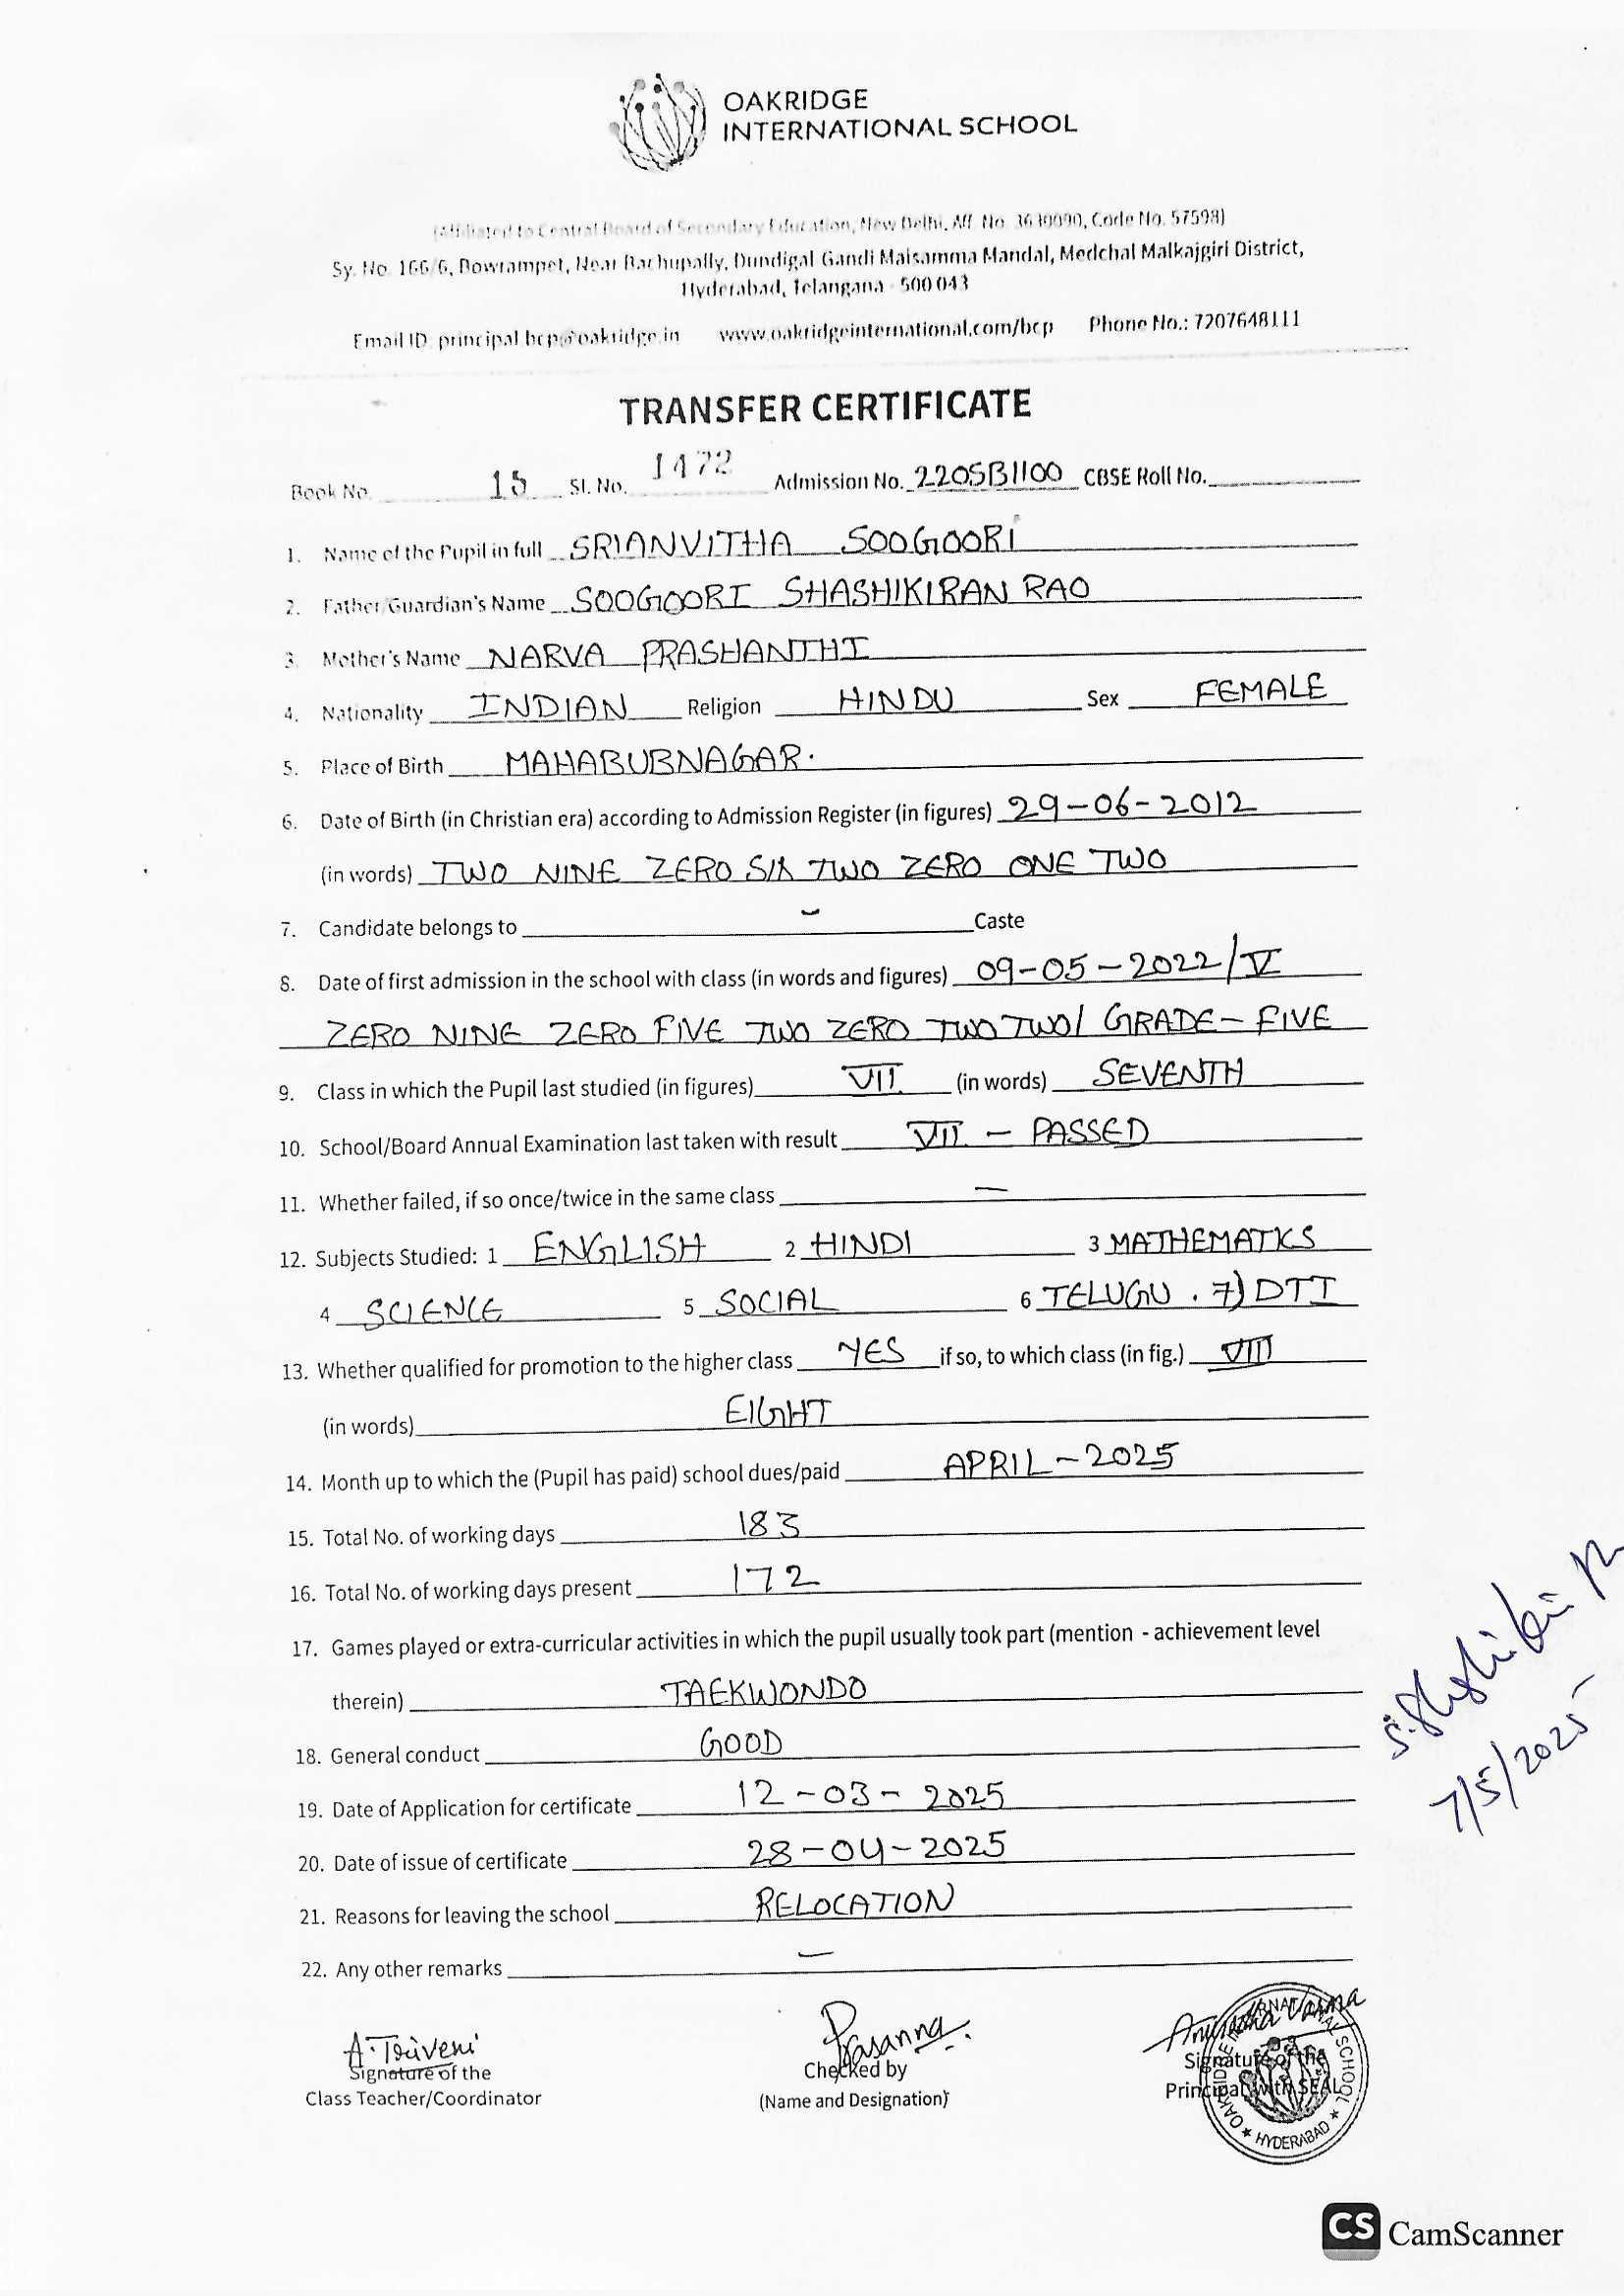 OAKRIDGE
INTERNATIONAL SCHOOL
(Affiliated to Central Board of Secondary Education, New Delhi, Aff. No. 3630090, Code No. 57598)
Sy. No. 166/6, Bowrampet, Near Bachupally, Dundigal Gandi Maisamma Mandal, Medchal Malkajgiri District,
Hyderabad, Telangana - 500 043
Email ID: principal.bcp@oakridge.in www.oakridgeinternational.com/bcp Phone No.: 7207648111
TRANSFER CERTIFICATE
Book No. 15 Sl. No. 1472 Admission No. 220SB1100 CBSE Roll No.
1. Name of the Pupil in full SRIANVITHA SOOGOORI
2. Father/Guardian's Name SOOGOORI SHASHIKIRAN RAO
3. Mother's Name NARVA PRASHANTHI
4. Nationality INDIAN Religion HINDU Sex FEMALE
5. Place of Birth MAHABUBNAGAR.
6. Date of Birth (in Christian era) according to Admission Register (in figures) 29-06-2012
(in words) TWO NINE ZERO SIX TWO ZERO ONE TWO
7. Candidate belongs to - Caste
8. Date of first admission in the school with class (in words and figures) 09-05-2022/V
ZERO NINE ZERO FIVE TWO ZERO TWO TWO/ GRADE-FIVE
9. Class in which the Pupil last studied (in figures) VII (in words) SEVENTH
10. School/Board Annual Examination last taken with result VII - PASSED
11. Whether failed, if so once/twice in the same class -
12. Subjects Studied: 1 ENGLISH 2 HINDI 3 MATHEMATICS
4 SCIENCE 5 SOCIAL 6 TELUGU . 7) DTI
13. Whether qualified for promotion to the higher class YES if so, to which class (in fig.) VIII
(in words) EIGHT
14. Month up to which the (Pupil has paid) school dues/paid APRIL-2025
15. Total No. of working days 183
16. Total No. of working days present 172
17. Games played or extra-curricular activities in which the pupil usually took part (mention - achievement level
therein) TAEKWONDO
18. General conduct GOOD
19. Date of Application for certificate 12-03-2025
20. Date of issue of certificate 28-04-2025
21. Reasons for leaving the school RELOCATION
22. Any other remarks -
7/5/2025
A. Triveni Prasanna. Anuradha Varma
Signature of the Checked by Signature of the
Class Teacher/Coordinator (Name and Designation) Principal with SEAL
OAKRIDGE INTERNATIONAL SCHOOL
★ HYDERABAD ★
CS CamScanner